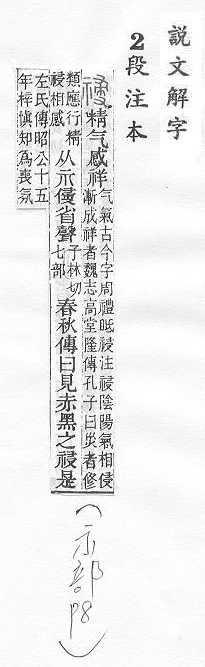 說文解字
2段注本
祲精气感祥
气氣古今字周禮眡祲注祲陰陽氣相侵
漸成祥者魏志高堂隆傳孔子曰災者修
類應行精
祲相感
从示侵省聲
子林切
七部
春秋傳曰見赤黑之祲是
左氏傳昭公十五
年梓愼知爲喪氛
(示部P8)